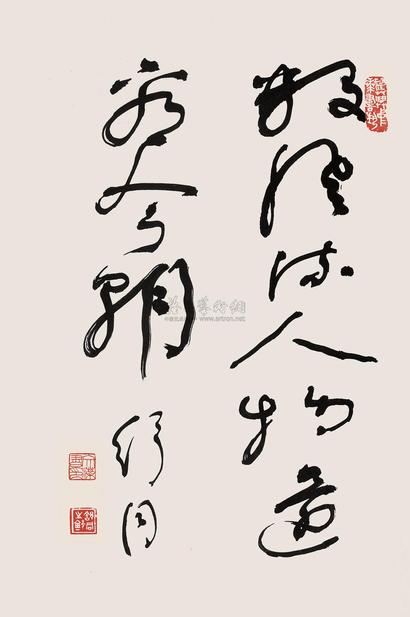 数风流人物还
看今朝
舒同
www.artron.net